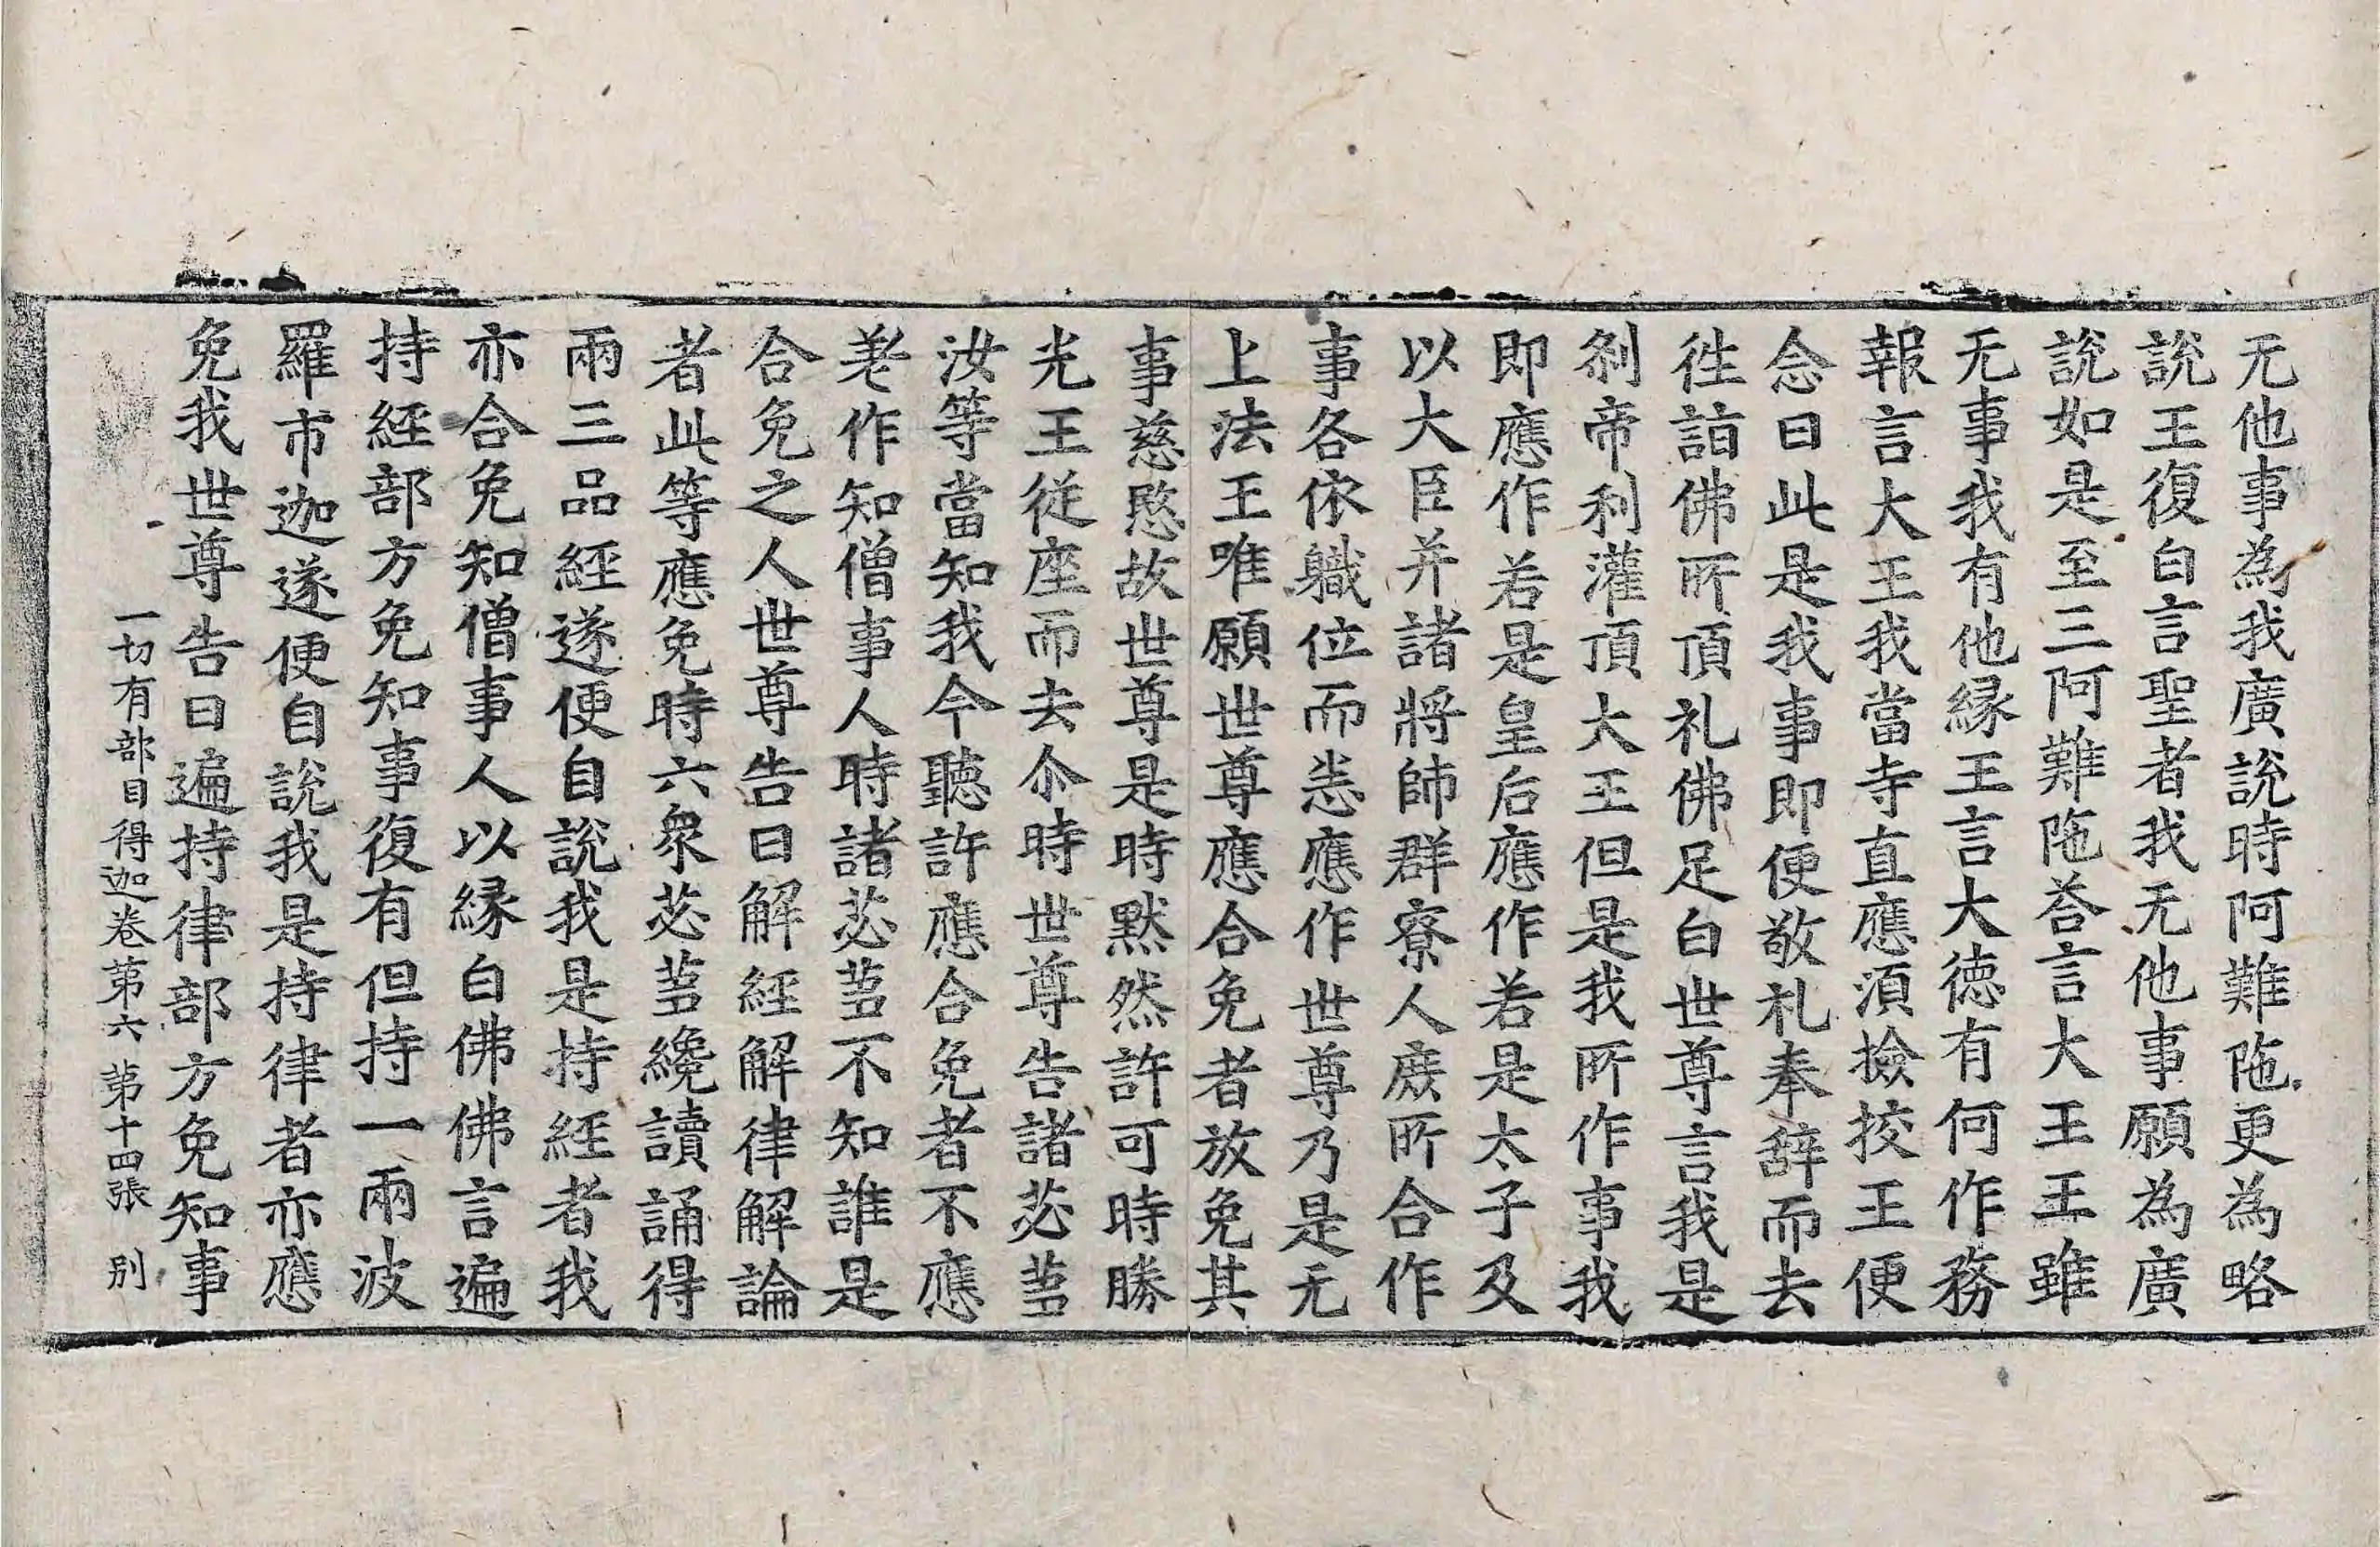 无他事為我廣說時阿難陁更為略
說王復白言聖者我无他事願為廣
說如是至三阿難陁荅言大王王雖
无事我有他縁王言大德有何作務
報言大王我當寺直應湏撿挍王便
念曰此是我事即便敬礼奉辤而去
徃詣佛所頂礼佛足白世尊言我是
刹帝利灌頂大王但是我所作事我
即應作若是皇后應作若是太子及
以大臣并諸將師群寮人庻所合作
事各依軄位而恙應作世尊乃是无
上法王唯願世尊應合免者放免其
事慈愍故世尊是時黙然許可時勝
光王従座而去尒時世尊告諸苾蒭
汝等當知我今聽許應合免者不應
差作知僧事人時諸苾蒭不知誰是
合免之人世尊告曰解經解律解論
者此等應免時六衆苾蒭纔讀誦得
兩三品經遂便自說我是持經者我
亦合免知僧事人以縁白佛佛言遍
持經部方免知事復有但持一兩波
羅市迦遂便自說我是持律者亦應
免我世尊告曰遍持律部方免知事
一切有部目得迦卷苐六 苐十四張 别